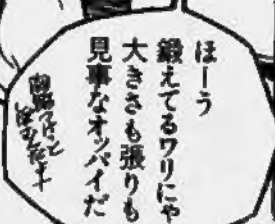 ほーう
鍛えてるワリにゃ
大きさも張りも
見事なオッパイだ